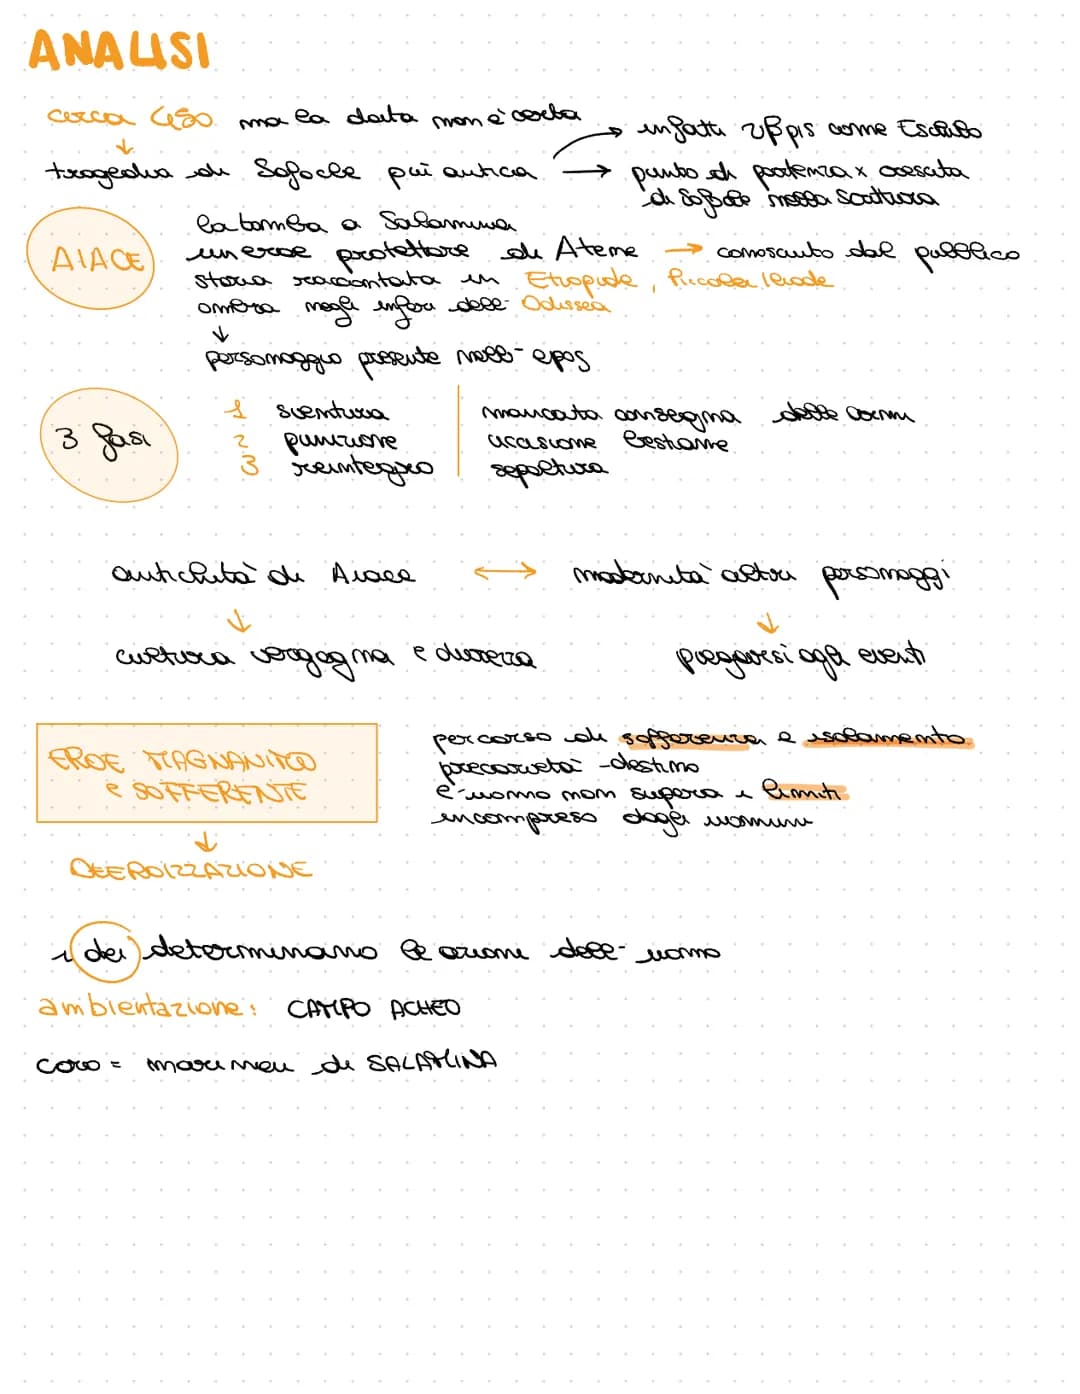 ANALISI
circa 450 ma la data non è certa
infatti υβρις come Eschilo
tragedia di Sofocle più antica → punto di partenza x crescita
di Sofocle nella scrittura
AIACE
la tomba a Salamina
un eroe protettore di Atene → conosciuto dal pubblico
storia raccontata in Etiopide, Piccola Iliade
ombra negli inferi dell' Odissea
personaggio presente nell' epos
3 fasi
1 sventura mancata consegna delle armi
2 punizione uccisione bestiame
3 reintegro sepoltura
antichità di Aiace ↔ modernità altri personaggi
cultura vergogna e durezza piegarsi agli eventi
EROE MAGNANIMO
e SOFFERENTE
percorso di sofferenza e isolamento
precarietà - destino
è uomo non supera i limiti
incompreso dagli uomini
DEEROIZZAZIONE
i dei determinano le azioni dell' uomo
ambientazione: CAMPO ACHEO
coro = marinai di SALAMINA